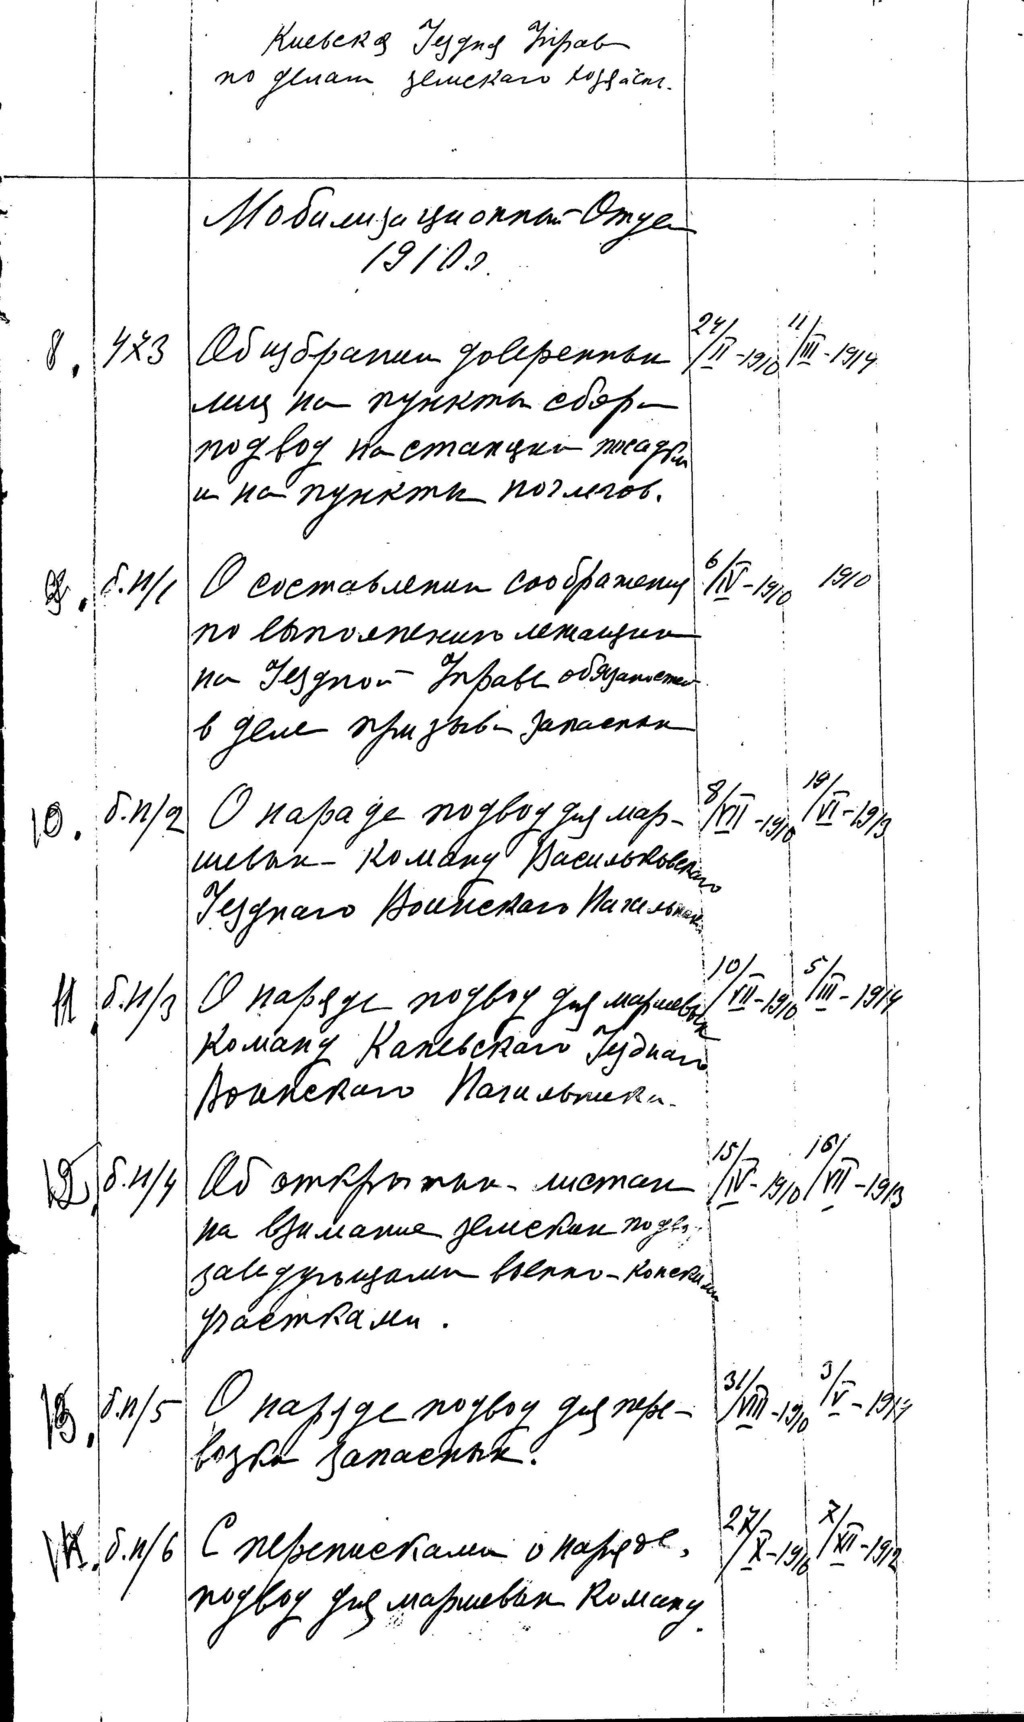 Киевская Уездная Управ
по делам земского хозяйст.
Мобилизационный Отдел
1910 г.
8. 473 Об избрании доверенных 24/II-1910 11/III-1914
лиц на пункты сбора
подвод на станции посадки
и на пункты ночлегов.
9. б.н/1 О составлении соображения 6/IV-1910 1910
по выполнению лежащих
на Уездной Управе обязаностей
в деле призыва запасных
10. б.н/2 О наряде подвод для мар- 8/VII-1910 19/VI-1913
шевых команд Васильковского
Уездного Воинского Начальника
11. б.н/3 О наряде подвод для маршевых 10/VII-1910 5/III-1914
команд Каневского Уездного
Воинского Начальника.
12. б.н/4 Об открытых листах 15/IV-1910 16/VII-1913
на взимание земских подв.
заведующими военно-конскими
участками.
13. б.н/5 О наряде подвод для пере- 31/VIII-1910 3/V-1914
возки запасных.
14. б.н/6 С переписками о наряде 27/X-1910 7/XII-1912
подвод для маршевых команд.